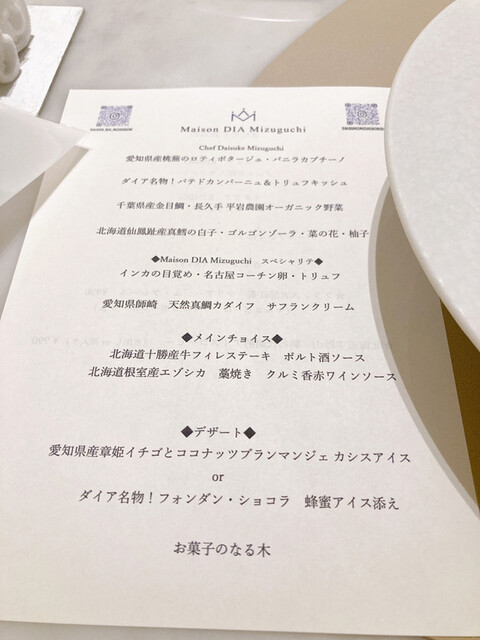 Maison DIA Mizuguchi
Chef Daisuke Mizuguchi
愛知県産桃蕪のロティポタージュ・バニラカプチーノ
ダイア名物！パテドカンパーニュ＆トリュフキッシュ
千葉県産金目鯛・長久手 平岩農園オーガニック野菜
北海道仙鳳趾産真鱈の白子・ゴルゴンゾーラ・菜の花・柚子
◆Maison DIA Mizuguchi　スペシャリテ◆
インカの目覚め・名古屋コーチン卵・トリュフ
愛知県師崎　天然真鯛カダイフ　サフランクリーム
◆メインチョイス◆
北海道十勝産牛フィレステーキ　ポルト酒ソース
北海道根室産エゾシカ　藁焼き　クルミ香赤ワインソース
◆デザート◆
愛知県産章姫イチゴとココナッツブランマンジェ カシスアイス
or
ダイア名物！フォンダン・ショコラ　蜂蜜アイス添え
お菓子のなる木